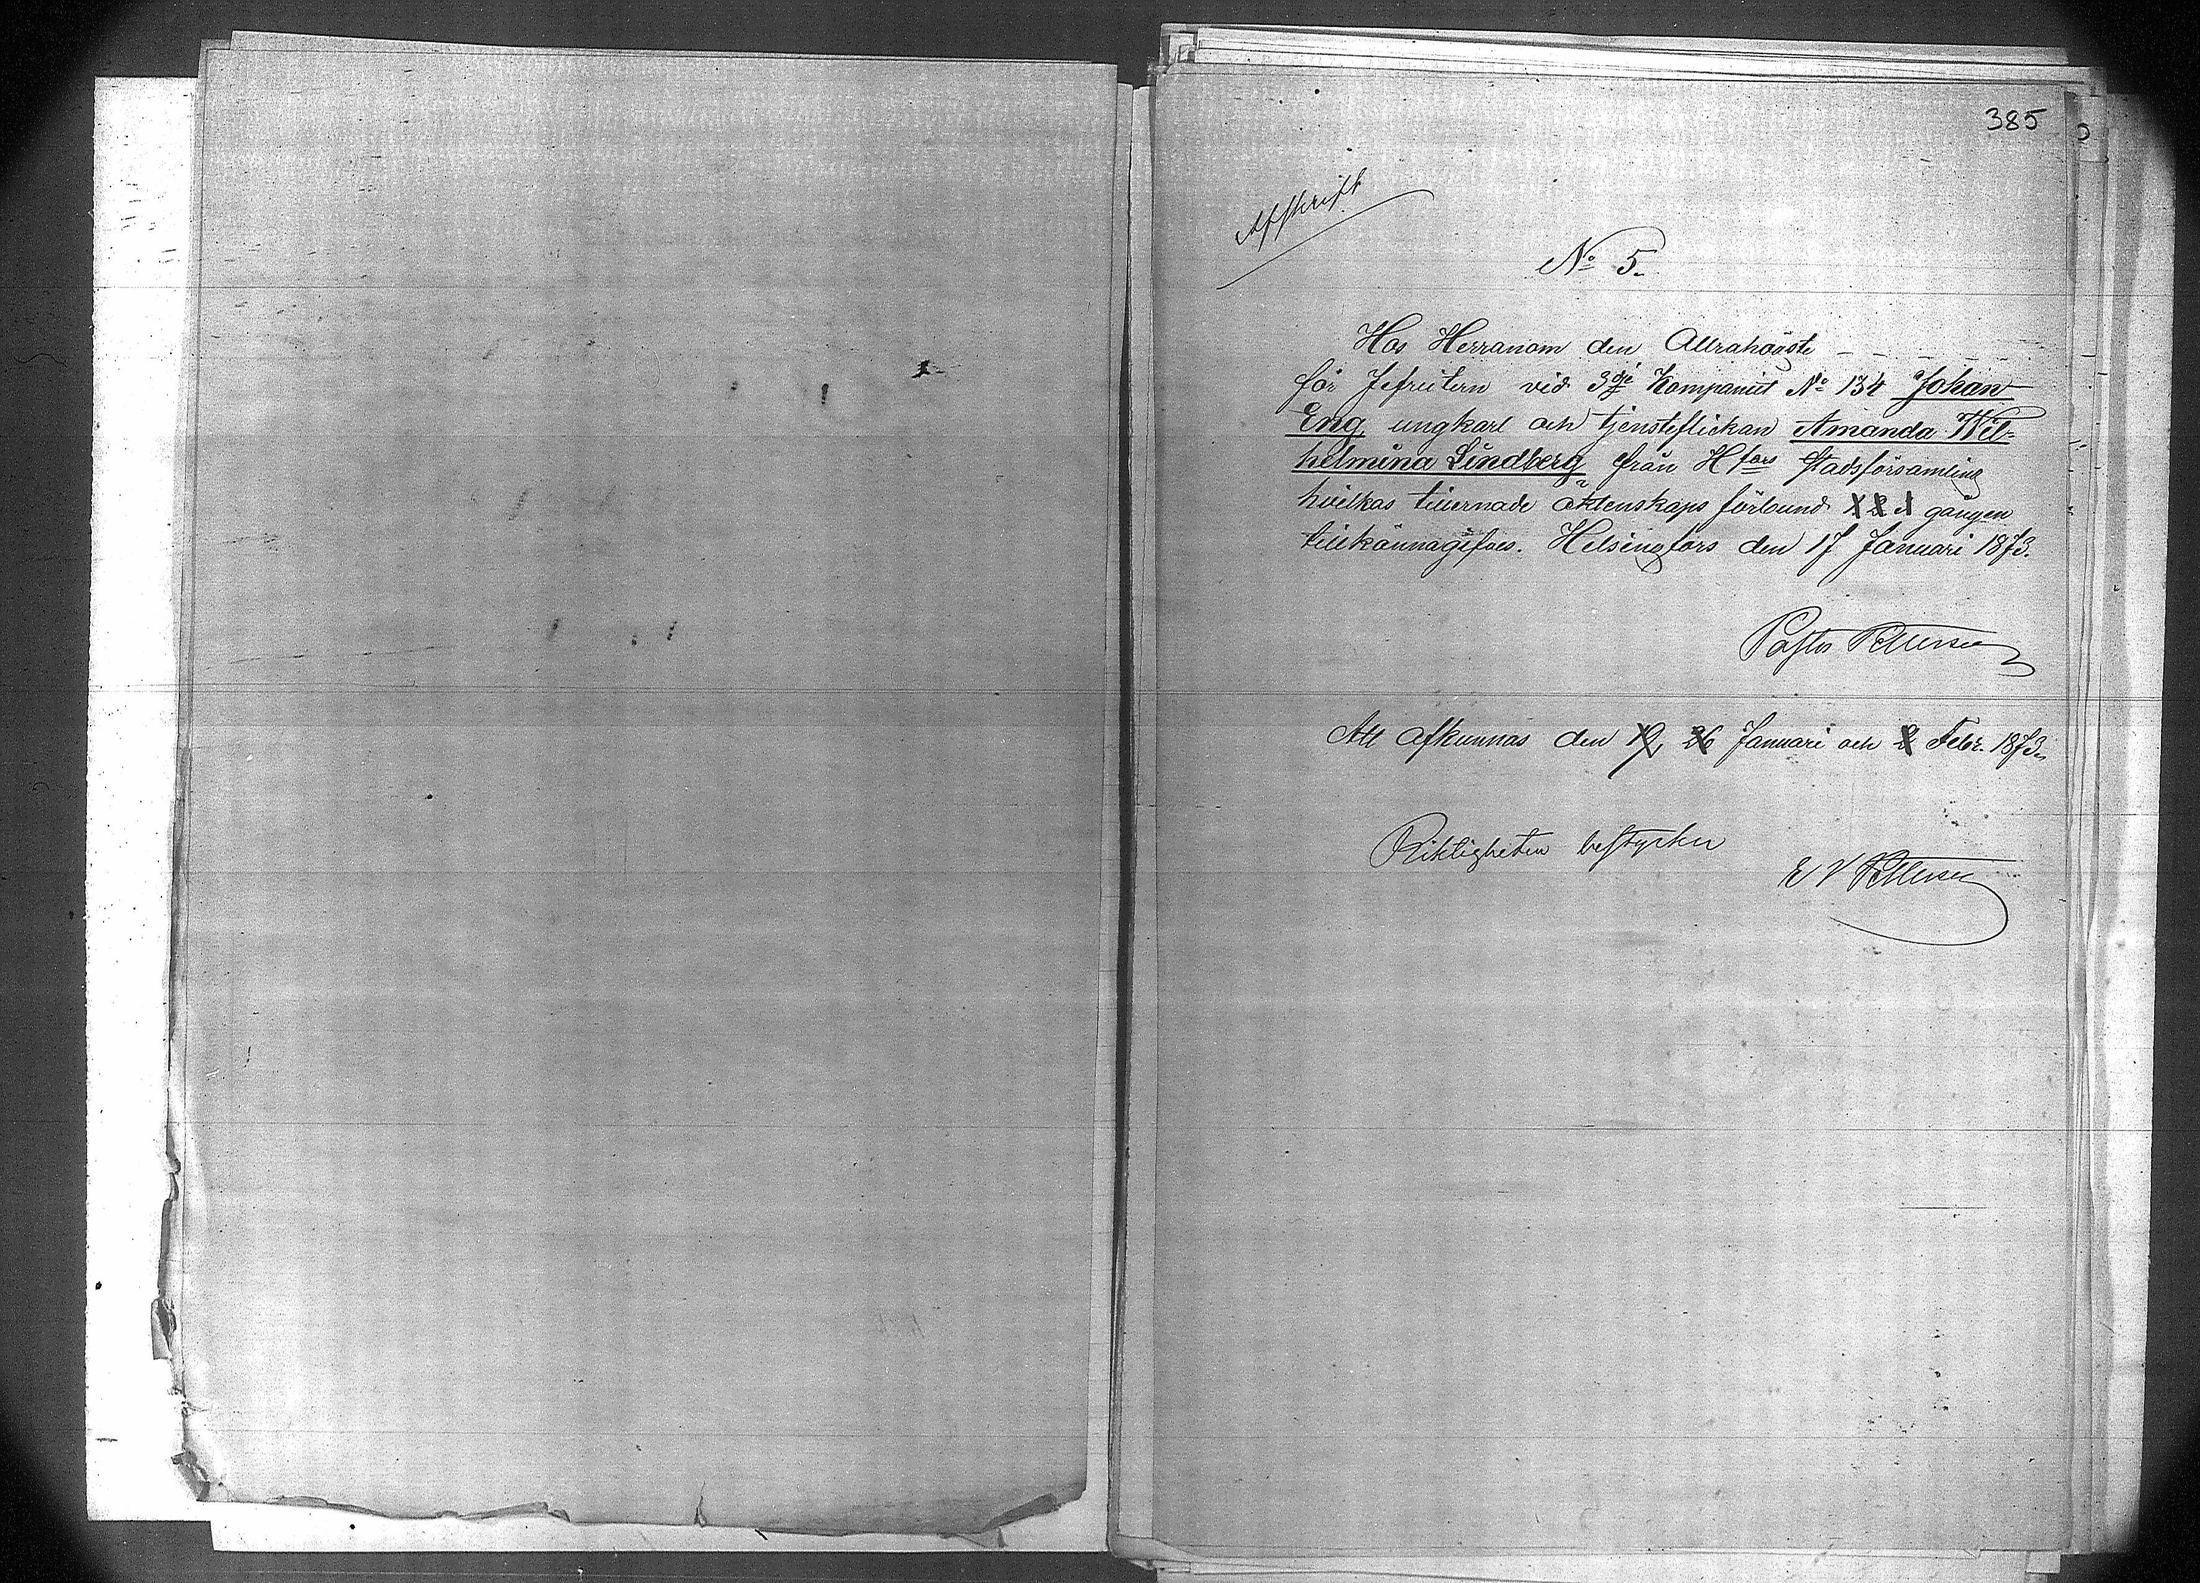 385
Afskrift
No 5.
Hos Herranom den Allrahögste - - - - -
för Jefreitern vid 3dje Kompaniet No 134 Johan
Eng, ungkarl och tjensteflickan Amanda Wil-
helmina Lindberg från Hfors Stadsförsamling
hvilkas tillernade äktenskaps förbund 1 2 3 gången
tillkännagifves. Helsingfors den 17 Januari 1873.
Pastor Pettersson
Att afkunnas den 19, 26 Januari och 2 Febr. 1873.
Riktigheten bestyrker
E V Pettersson